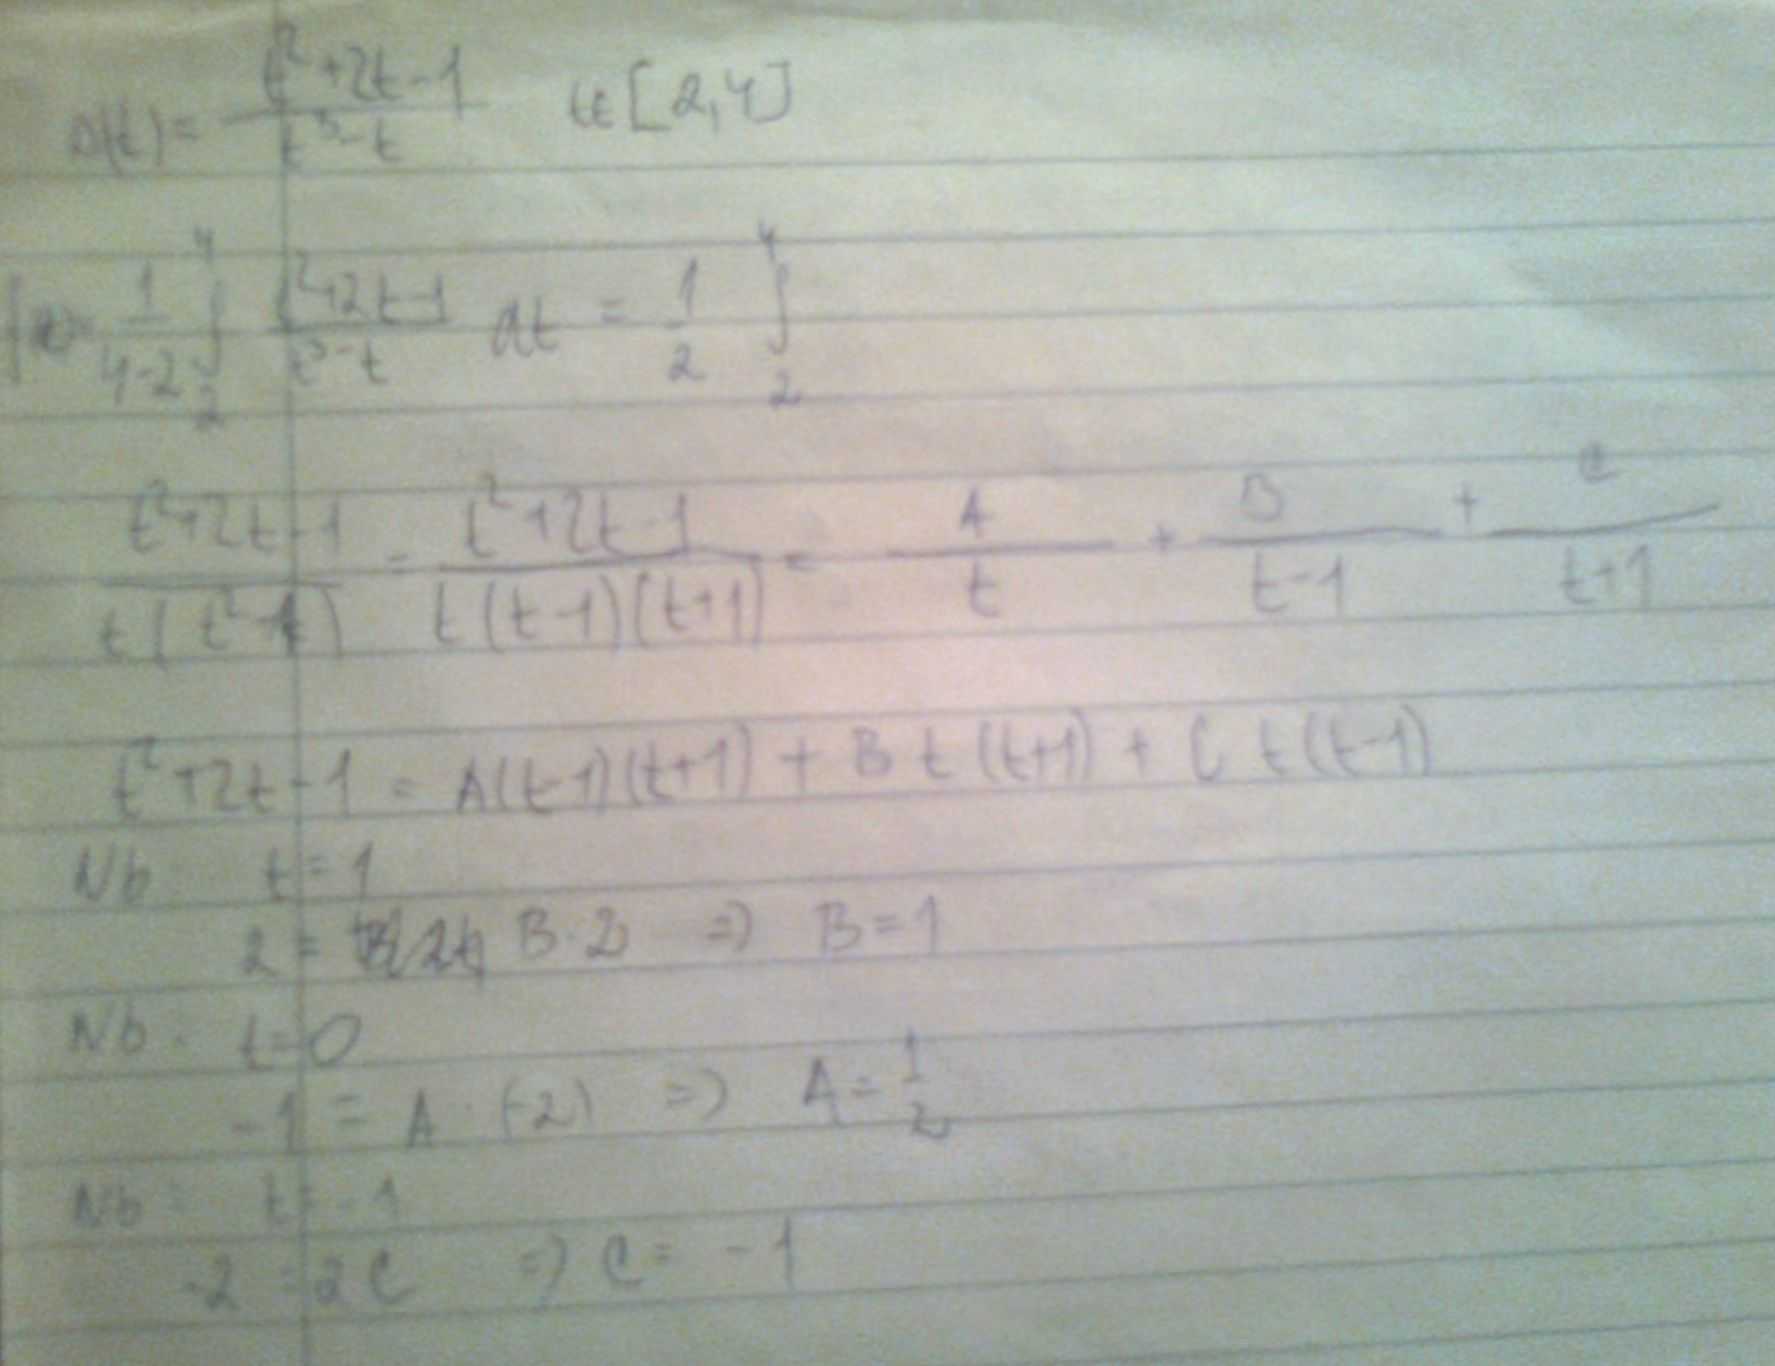 s(t) = \frac{t^2+2t-1}{t^3-t} t∈[2,4]
\frac{1}{4-2} \int_2^4 \frac{t^2+2t-1}{t^3-t} dt = \frac{1}{2} \int_2^4
\frac{t^2+2t-1}{t(t^2-1)} = \frac{t^2+2t-1}{t(t-1)(t+1)} = \frac{A}{t} + \frac{B}{t-1} + \frac{C}{t+1}
t^2+2t-1 = A(t-1)(t+1) + B t (t+1) + C t(t-1)
Nb t=1
2 = B·2 => B=1
Nb. t=0
-1 = A·(-2) => A = \frac{1}{2}
Nb: t=-1
-2 = 2C => C = -1